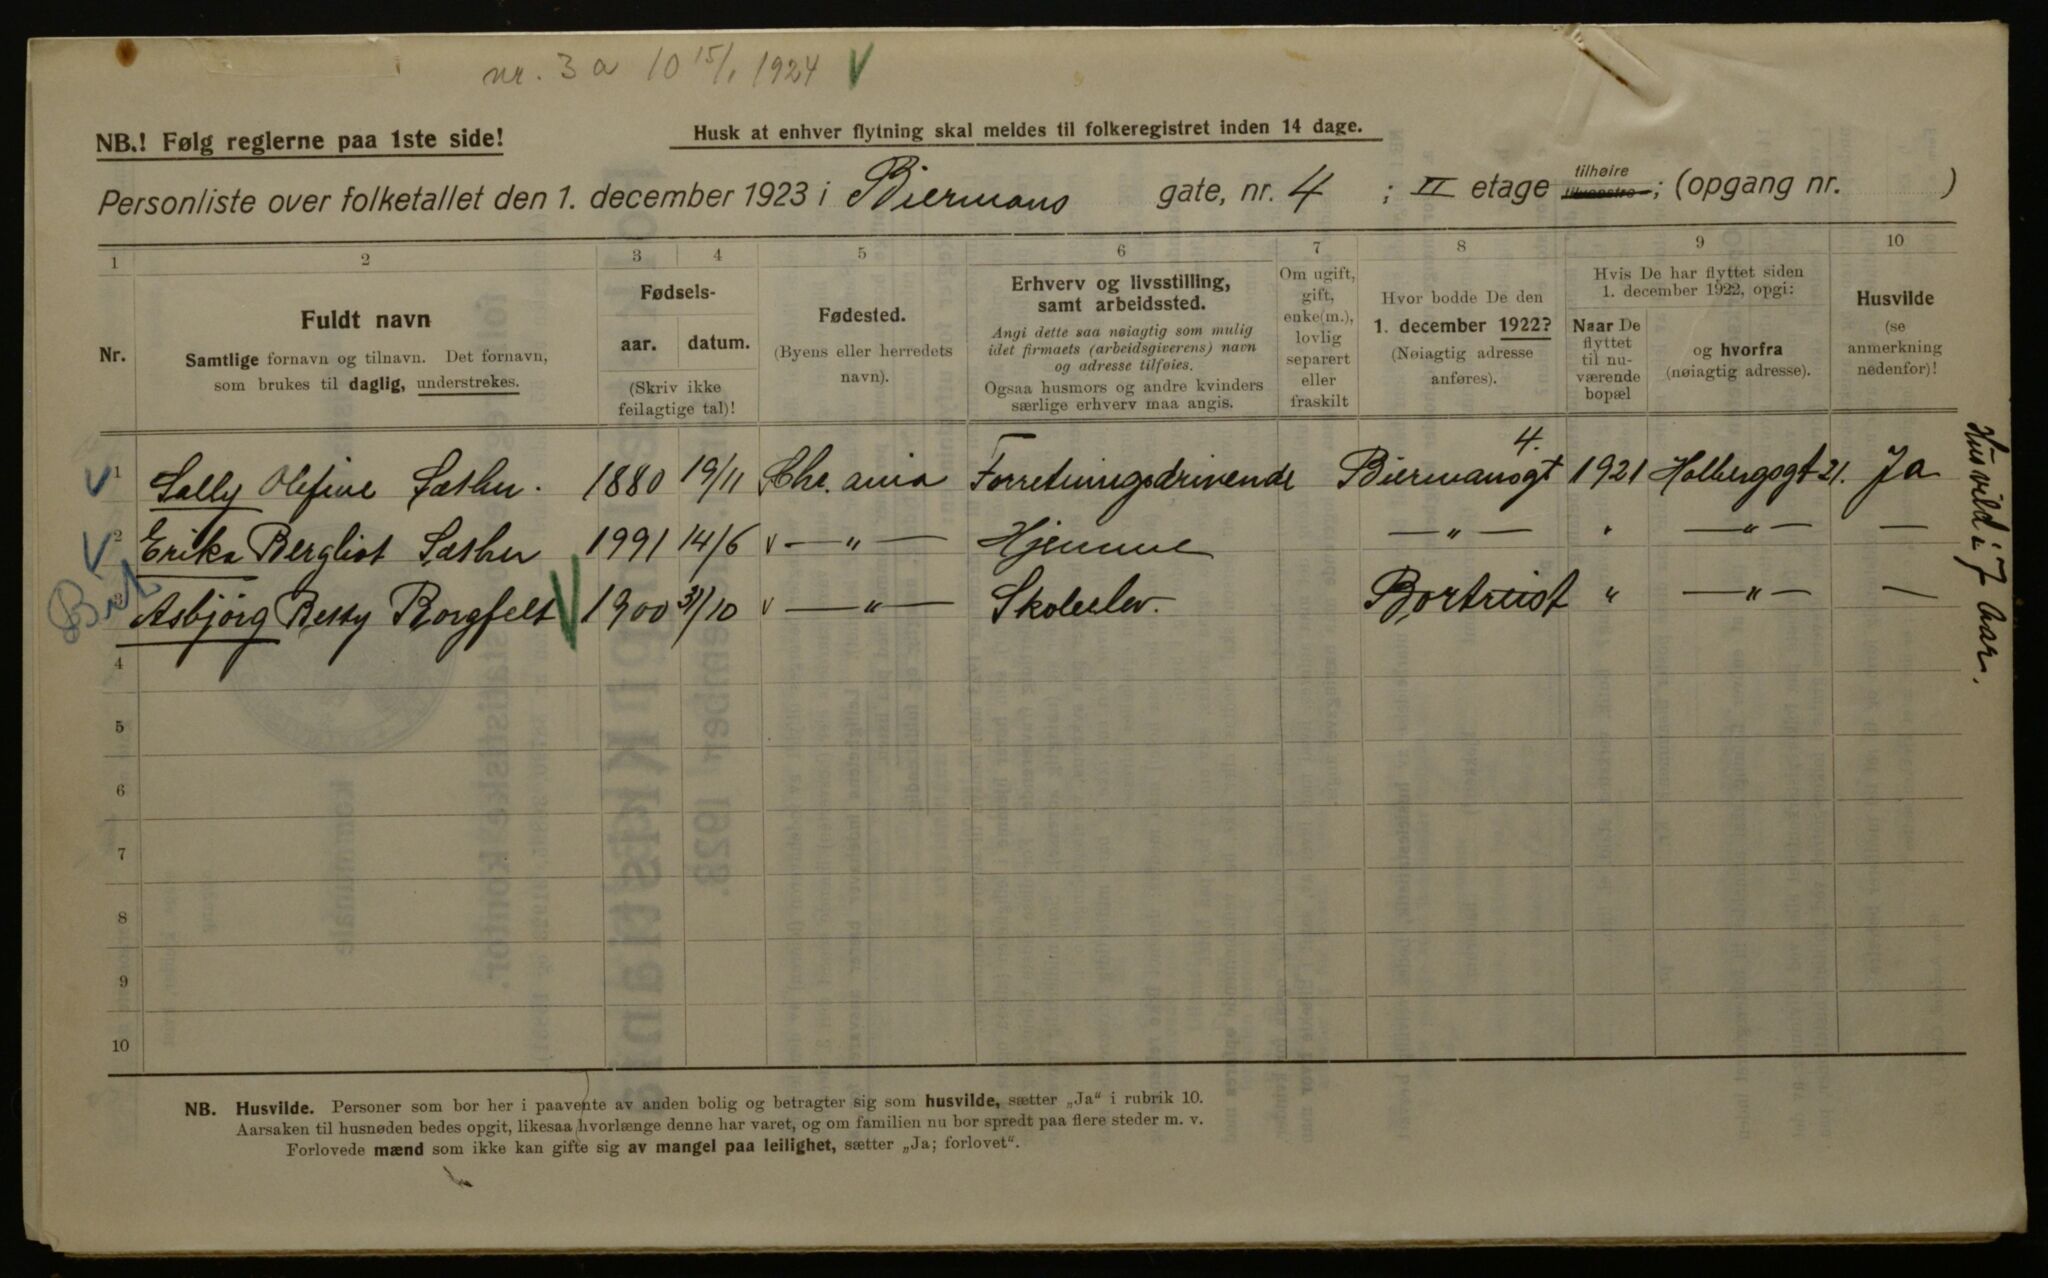 nr. 3a 10 15/1 1924 V
NB.! Følg reglerne paa 1ste side!
Husk at enhver flytning skal meldes til folkeregistret inden 14 dage.
Personliste over folketallet den 1. december 1923 i Biermans gate, nr. 4 ; II etage tilhøire tilvenstre; (opgang nr. )
1 2 3 4 5 6 7 8 9 10
Nr.
Fuldt navn
Samtlige fornavn og tilnavn. Det fornavn,
som brukes til daglig, understrekes.
Fødsels-
aar. datum.
(Skriv ikke
feilagtige tal)!
Fødested.
(Byens eller herredets
navn).
Erhverv og livsstilling,
samt arbeidssted.
Angi dette saa nøiagtig som mulig
idet firmaets (arbeidsgiverens) navn
og adresse tilføies.
Ogsaa husmors og andre kvinders
særlige erhverv maa angis.
Om ugift,
gift,
enke(m.),
lovlig
separert
eller
fraskilt
Hvor bodde De den
1. december 1922?
(Nøiagtig adresse
anføres).
Hvis De har flyttet siden
1. december 1922, opgi:
Naar De
flyttet
til nu-
værende
bopæl
og hvorfra
(nøiagtig adresse).
Husvilde
(se
anmerkning
nedenfor)!
V 1 Sally Olefine Sæther. 1880 19/11 Chr.ania Forretningsdrivende Biermansgt 4. 1921 Holbergsgt 21. Ja
V 2 Erika Bergliot Sæther 1991 14/6 v — „ — Hjemme — „ — " — „ — —
3 Asbjörg Bessy Borgfelt V 1900 31/10 v — „ — Skoleelev. Bortreist " — „ — —
4
5
6
7
8
9
10
Husvild i 7 aar.
NB. Husvilde. Personer som bor her i paavente av anden bolig og betragter sig som husvilde, sætter „Ja“ i rubrik 10.
Aarsaken til husnøden bedes opgit, likesaa hvorlænge denne har varet, og om familien nu bor spredt paa flere steder m. v.
Forlovede mænd som ikke kan gifte sig av mangel paa leilighet, sætter „Ja; forlovet“.